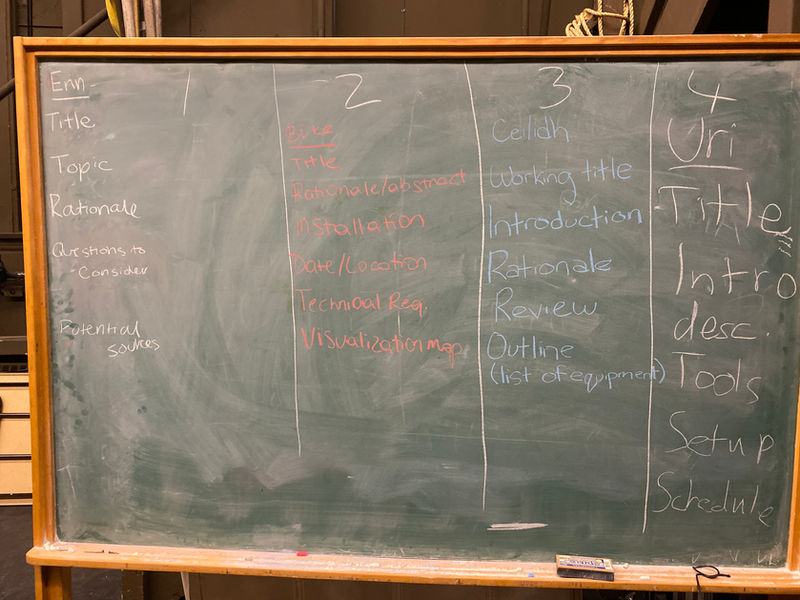 1
Erin
Title
Topic
Rationale
Questions to
Consider
Potential
sources
2
Bike
Title
Rationale/abstract
Installation
Date/Location
Technical Req.
Visualization Map
3
Ceilidh
Working title
Introduction
Rationale
Review
Outline
(list of equipment)
4
Uri
Title
Intro
desc.
Tools
Setup
Schedule